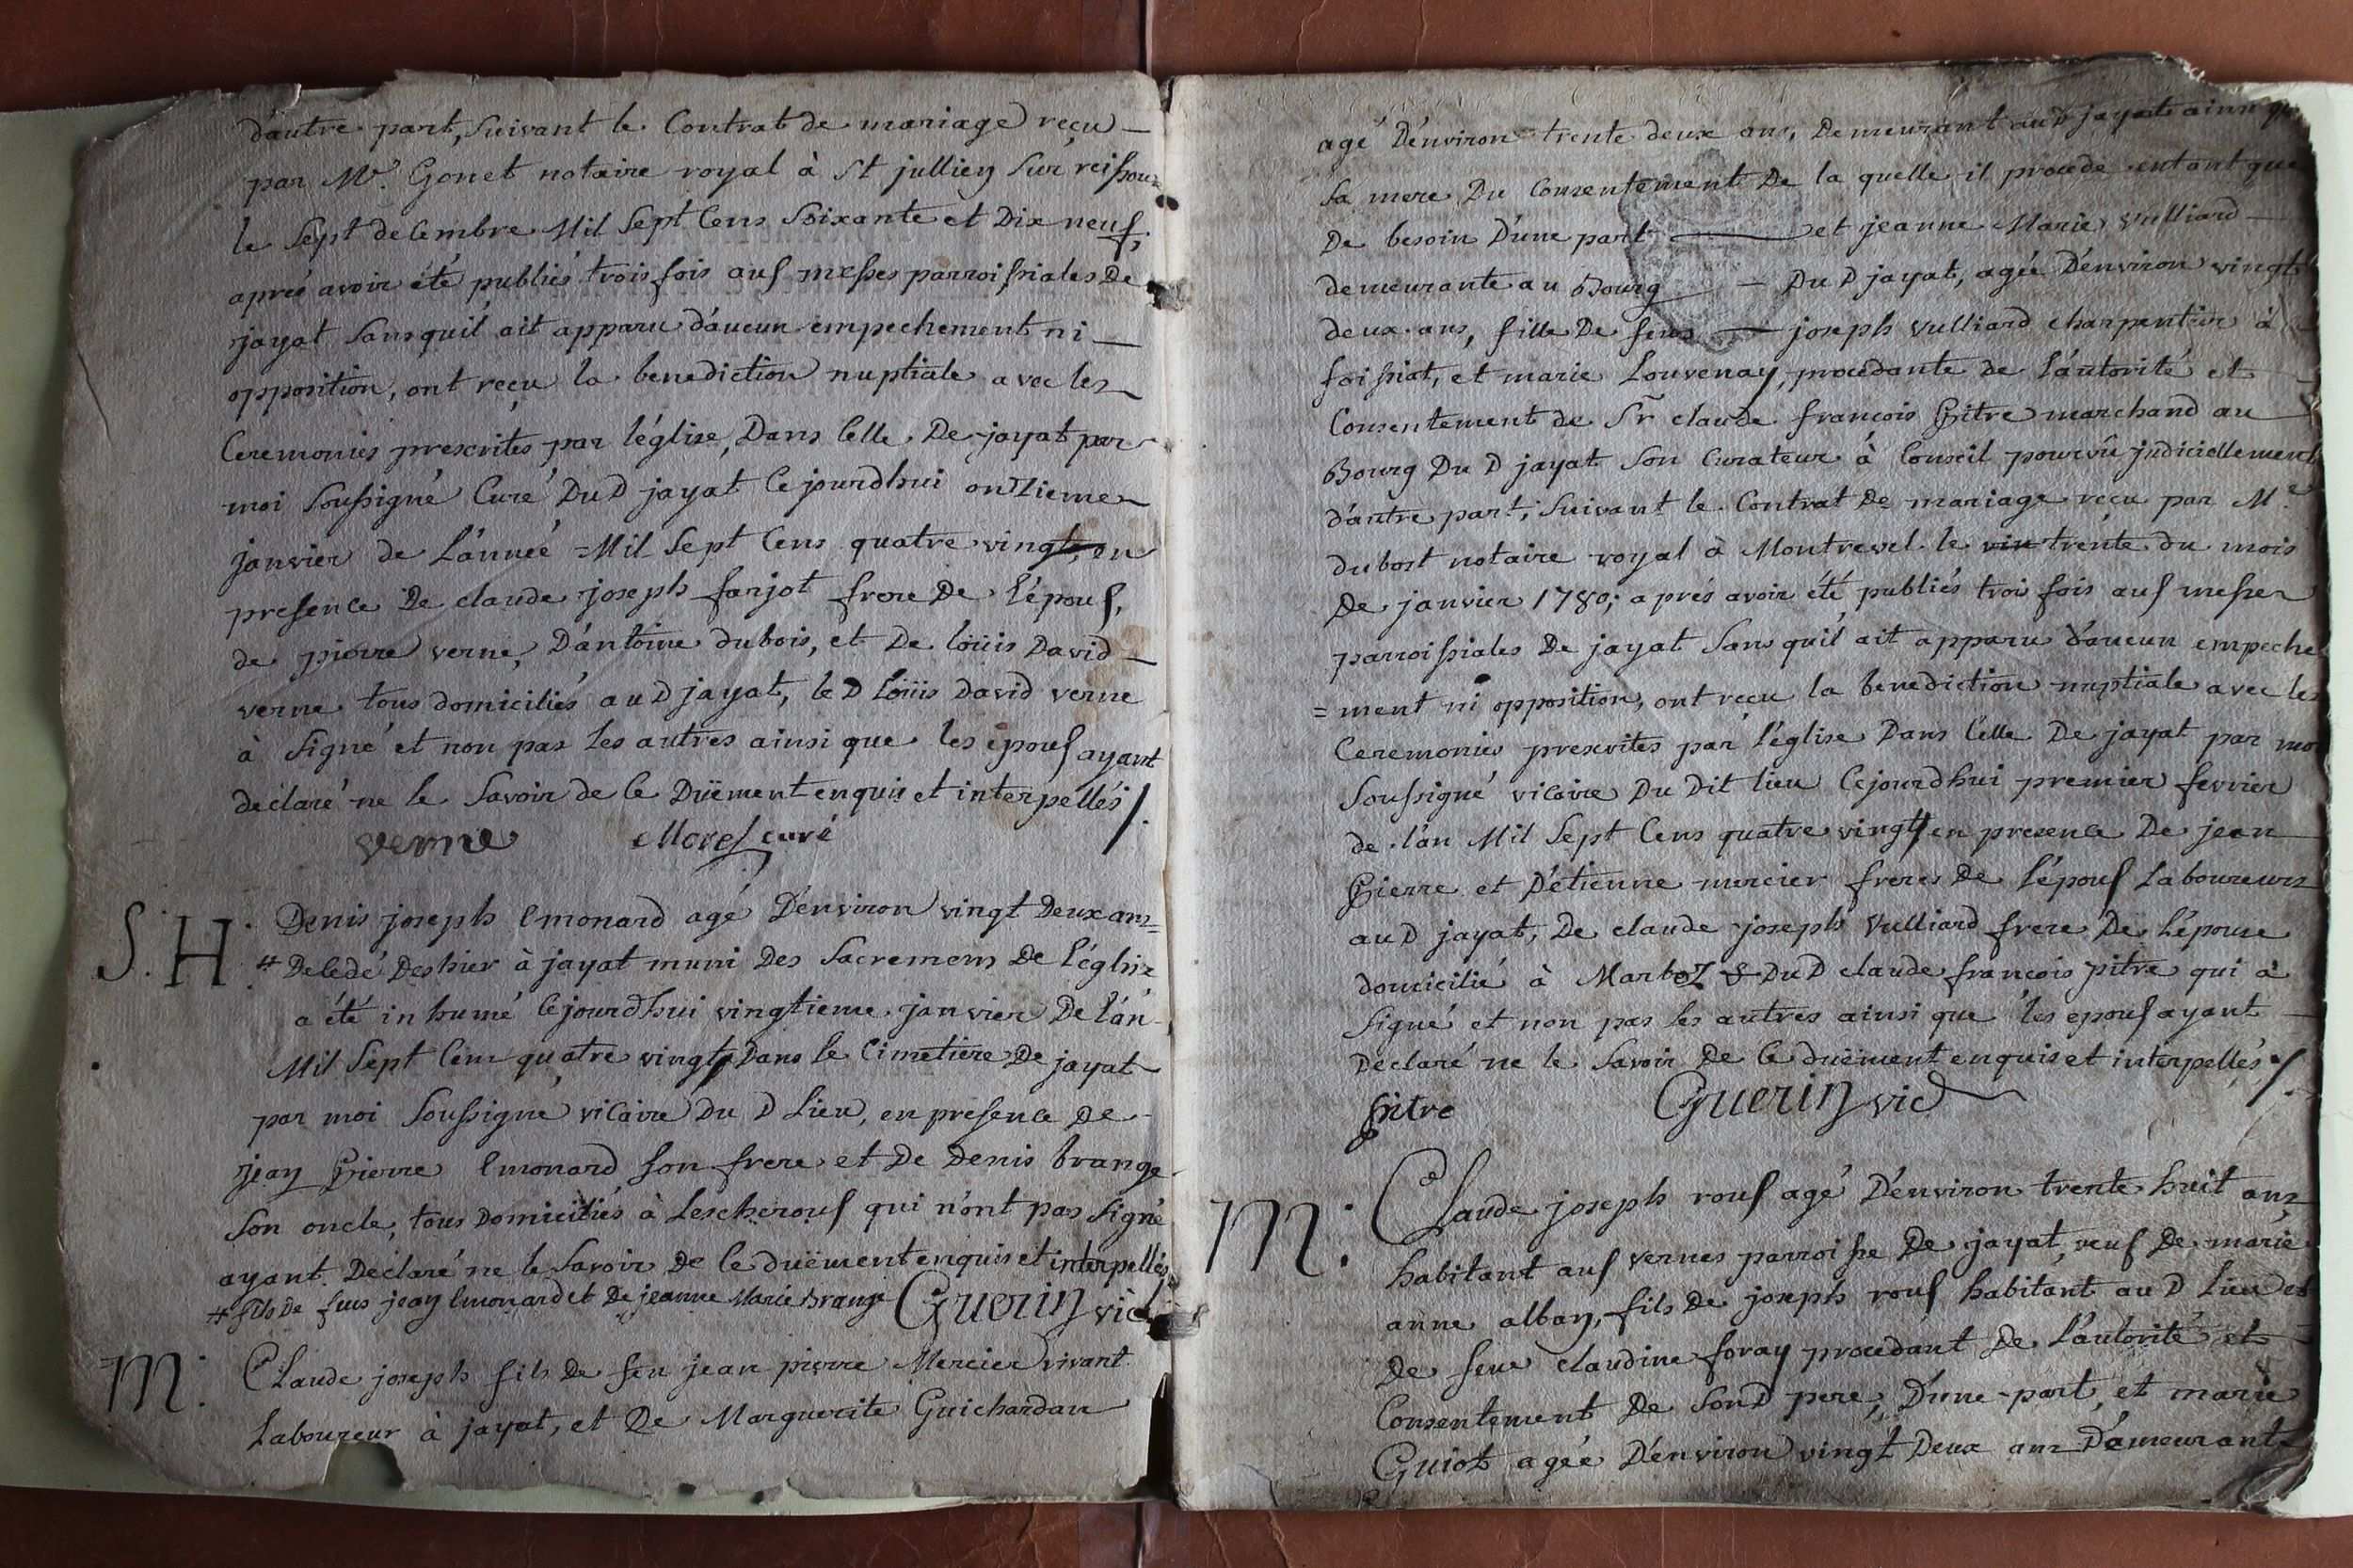 d'autre part, suivant le Contrat de mariage reçu
par Me. Gonet notaire royal à St jullien sur reissouze
le sept decembre Mil Sept Cens Soixante et Dix neuf,
aprés avoir été publiés trois fois aus messes parroissiales De
jayat sans quil ait apparu d'aucun empechement ni
opposition, ont reçu la benediction nuptiale avec les
Ceremonies prescrites par l'église, Dans Celle De jayat par
moi soussigné Curé Du D jayat Cejourdhui onzieme
janvier de l'année Mil Sept Cens quatre vingt, en
presence De claude joseph farjot frere De l'épous,
de pierre verne, D'antoine dubois, et De loüis David
verne tous domiciliés au D jayat, le D loüis David verne
à Signé et non pas les autres ainsi que les épous ayant
declaré ne le Savoir de ce Düement enquis et interpellés /.
verne Morel curé
S. H. Denis joseph Emonard agé D'environ vingt Deux ans
# Decedé Des hier à jayat muni Des Sacremens De l'église
a été inhumé Cejourdhui vingtieme janvier De l'an
Mil Sept Cens quatre vingt Dans le Cimetiere De jayat
par moi Soussigné vicaire Du D Lieu, en presence De
jean Pierre Emonard son frere et De Denis brange
son oncle, tous Domiciliés à Lescherous qui n'ont pas Signé
ayant Declaré ne le Savoir De ce düement enquis et interpellés
# fils De feus jean Emonard et De jeanne Marie Brange Guerin vic
M. Claude joseph fils De feu jean pierre Mercier vivant
Laboureur à jayat, et De Marguerite Guichardan
agé D'environ trente deux ans, Demeurant au D jayat ainsi que
Sa mere Du Consentement De la quelle il procede entant que
De besoin D'une part et jeanne Marie Vulliard
demeurante au Bourg Du D jayat, agée D'environ vingt
deux ans, fille De feus joseph vulliard charpentier à
foissiat, et marie Louvenay, procedante de l'autorité et
Consentement de Sr claude françois Pitre marchand au
Bourg Du D jayat Son Curateur à Conseil pourvû judiciellement
d'autre part, Suivant le Contrat De mariage reçu par Me
dubost notaire royal à Montrevel le vin trente du mois
De janvier 1780; aprés avoir été publiés troi fois aus messes
parroissiales De jayat Sans quil ait apparu d'aucun empeche
= ment ni opposition, ont reçu la benediction nuptiale avec les
Ceremonies prescrites par l'église Dans Celle De jayat par moi
Soussigné vicaire Du Dit lieu Cejourdhui premier fevrier
de l'an Mil Sept Cens quatre vingt en presence De jean
Pierre et D'étienne mercier freres De l'épous Laboureurs
au D jayat, De claude joseph Vulliard frere De L'épouse
domicilié à Marboz & Du D claude françois pitre qui à
Signé et non pas les autres ainsi que les epous ayant
Declaré ne le Savoir De ce düement enquis et interpellés /.
Pitre Guerin vic
M. Claude joseph rous agé D'environ trente huit ans
habitant aus vernes parroisse De jayat, veuf De marie
anne alban, fils De joseph rous habitant au D Lieu et
De feue claudine foray procedant De L'autorité et
Consentement De Son D pere, D'une part, et marie
Guiot agée D'environ vingt Deux ans Demeurant